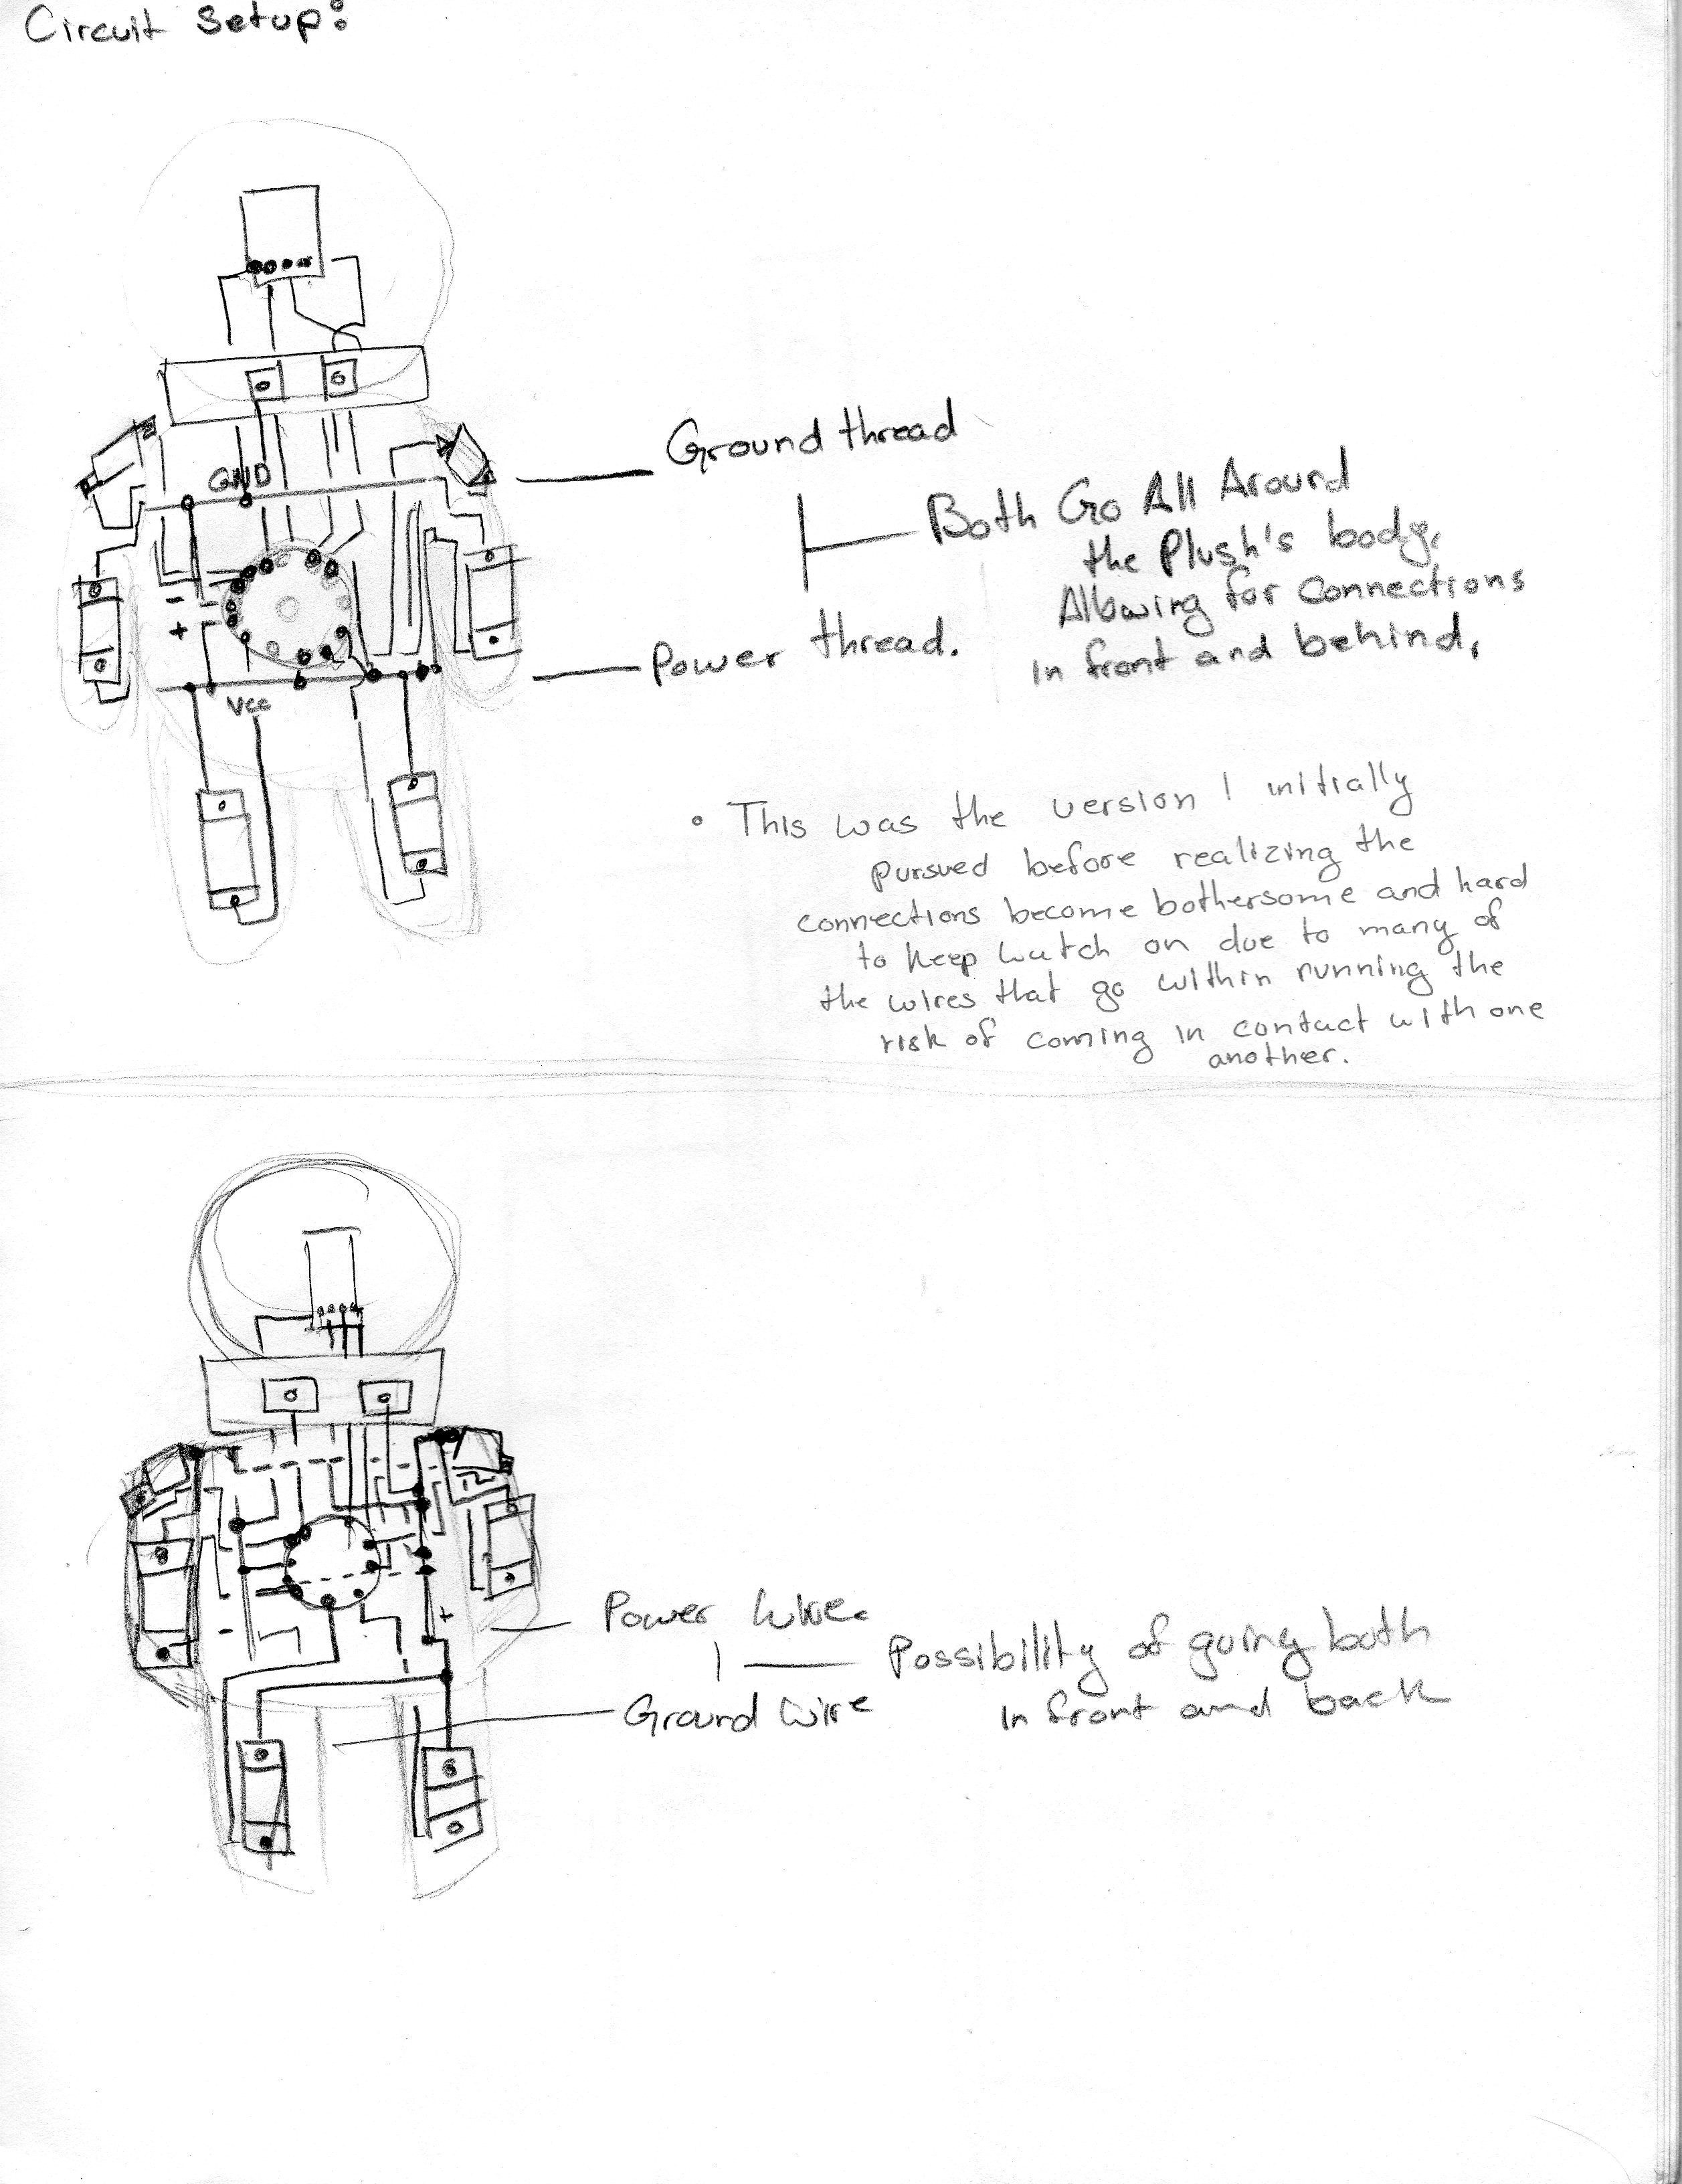 Circuit Setup:
GND
-
+
VCC
Ground thread
Both Go All Around
the Plush's body,
Allowing for connections
in front and behind,
Power thread.
• This was the version I initially
pursued before realizing the
connections become bothersome and hard
to keep watch on due to many of
the wires that go within running the
risk of coming in contact with one
another.
-
+
Power Wire.
Possibility of going both
in front and back
Ground Wire